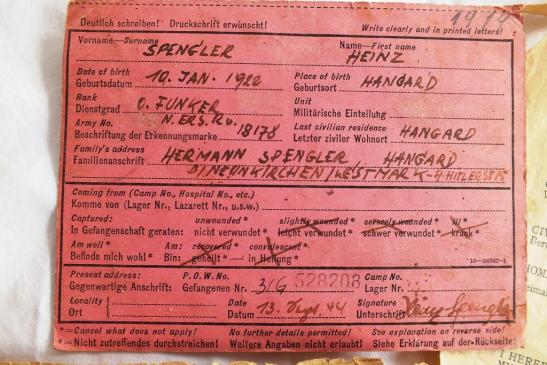 Deutlich schreiben! Druckschrift erwünscht! Write clearly and in printed letters!
Vorname—Surname SPENGLER Name—First name HEINZ
Date of birth
Geburtsdatum 10. JAN. 1922
Place of birth
Geburtsort HANGARD
Rank
Dienstgrad O. FUNKER
Unit
Militärische Einteilung
Army No. N.ERS.
Beschriftung der Erkennungsmarke 18178
Last civilian residence
Letzter ziviler Wohnort HANGARD
Family's address
Familienanschrift HERMANN SPENGLER, HANGARD
NEUNKIRCHEN/WESTMARK
Coming from (Camp No., Hospital No., etc.)
Komme von (Lager Nr., Lazarett Nr., u.s.w.)
Captured: unwounded* slightly wounded* severely wounded* ill*
In Gefangenschaft geraten: nicht verwundet* leicht verwundet* schwer verwundet* krank*
Am well* Am: recovered* convalescent*
Befinde mich wohl* Bin: geheilt* — in Heilung*
Present address: P.O.W. No. Camp No.
Gegenwärtige Anschrift: Gefangenen Nr. 31G 528208 Lager Nr.
Locality Date Signature
Ort Datum 13. Sept. 44 Unterschrift Heinz Spengler
*=Cancel what does not apply! No further details permitted! See explanation on reverse side!
*=Nicht zutreffendes durchstreichen! Weitere Angaben nicht erlaubt! Siehe Erklärung auf der Rückseite!
I HERE